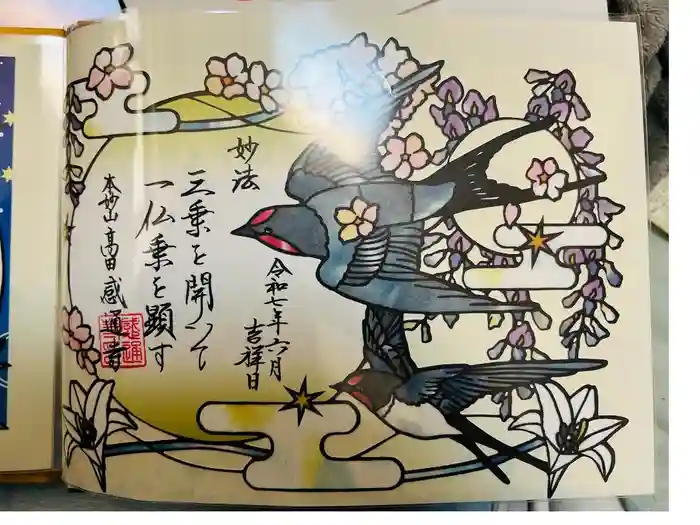 妙法
三乗を開いて
一仏乗を顕す
本妙山 高田 感通寺
令和七年六月
吉祥日